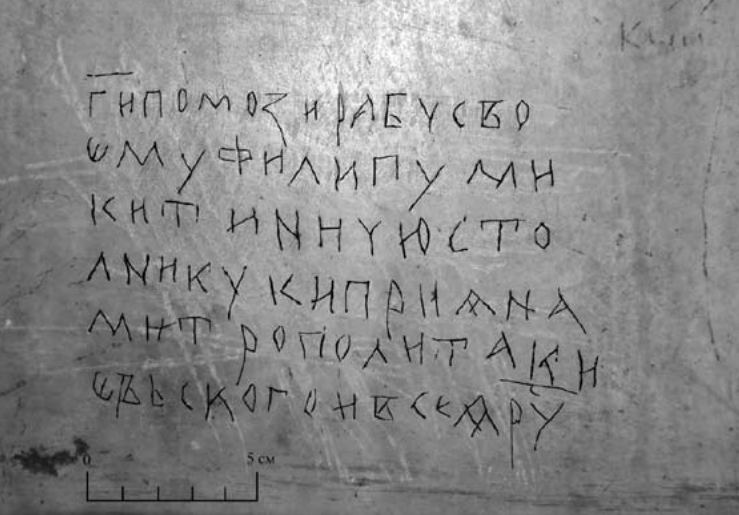 Г҃И ПОМОЗИ РАБУ СВО
ЄМУ ФИЛИПУ МИ
КИТИNИЧЮ СТО
ЛNИКУ КИПРИАNА
МИТРОПОЛИТА КИ
ЄВЬСКОГО И ВСЕѦ РУ
0 5 см